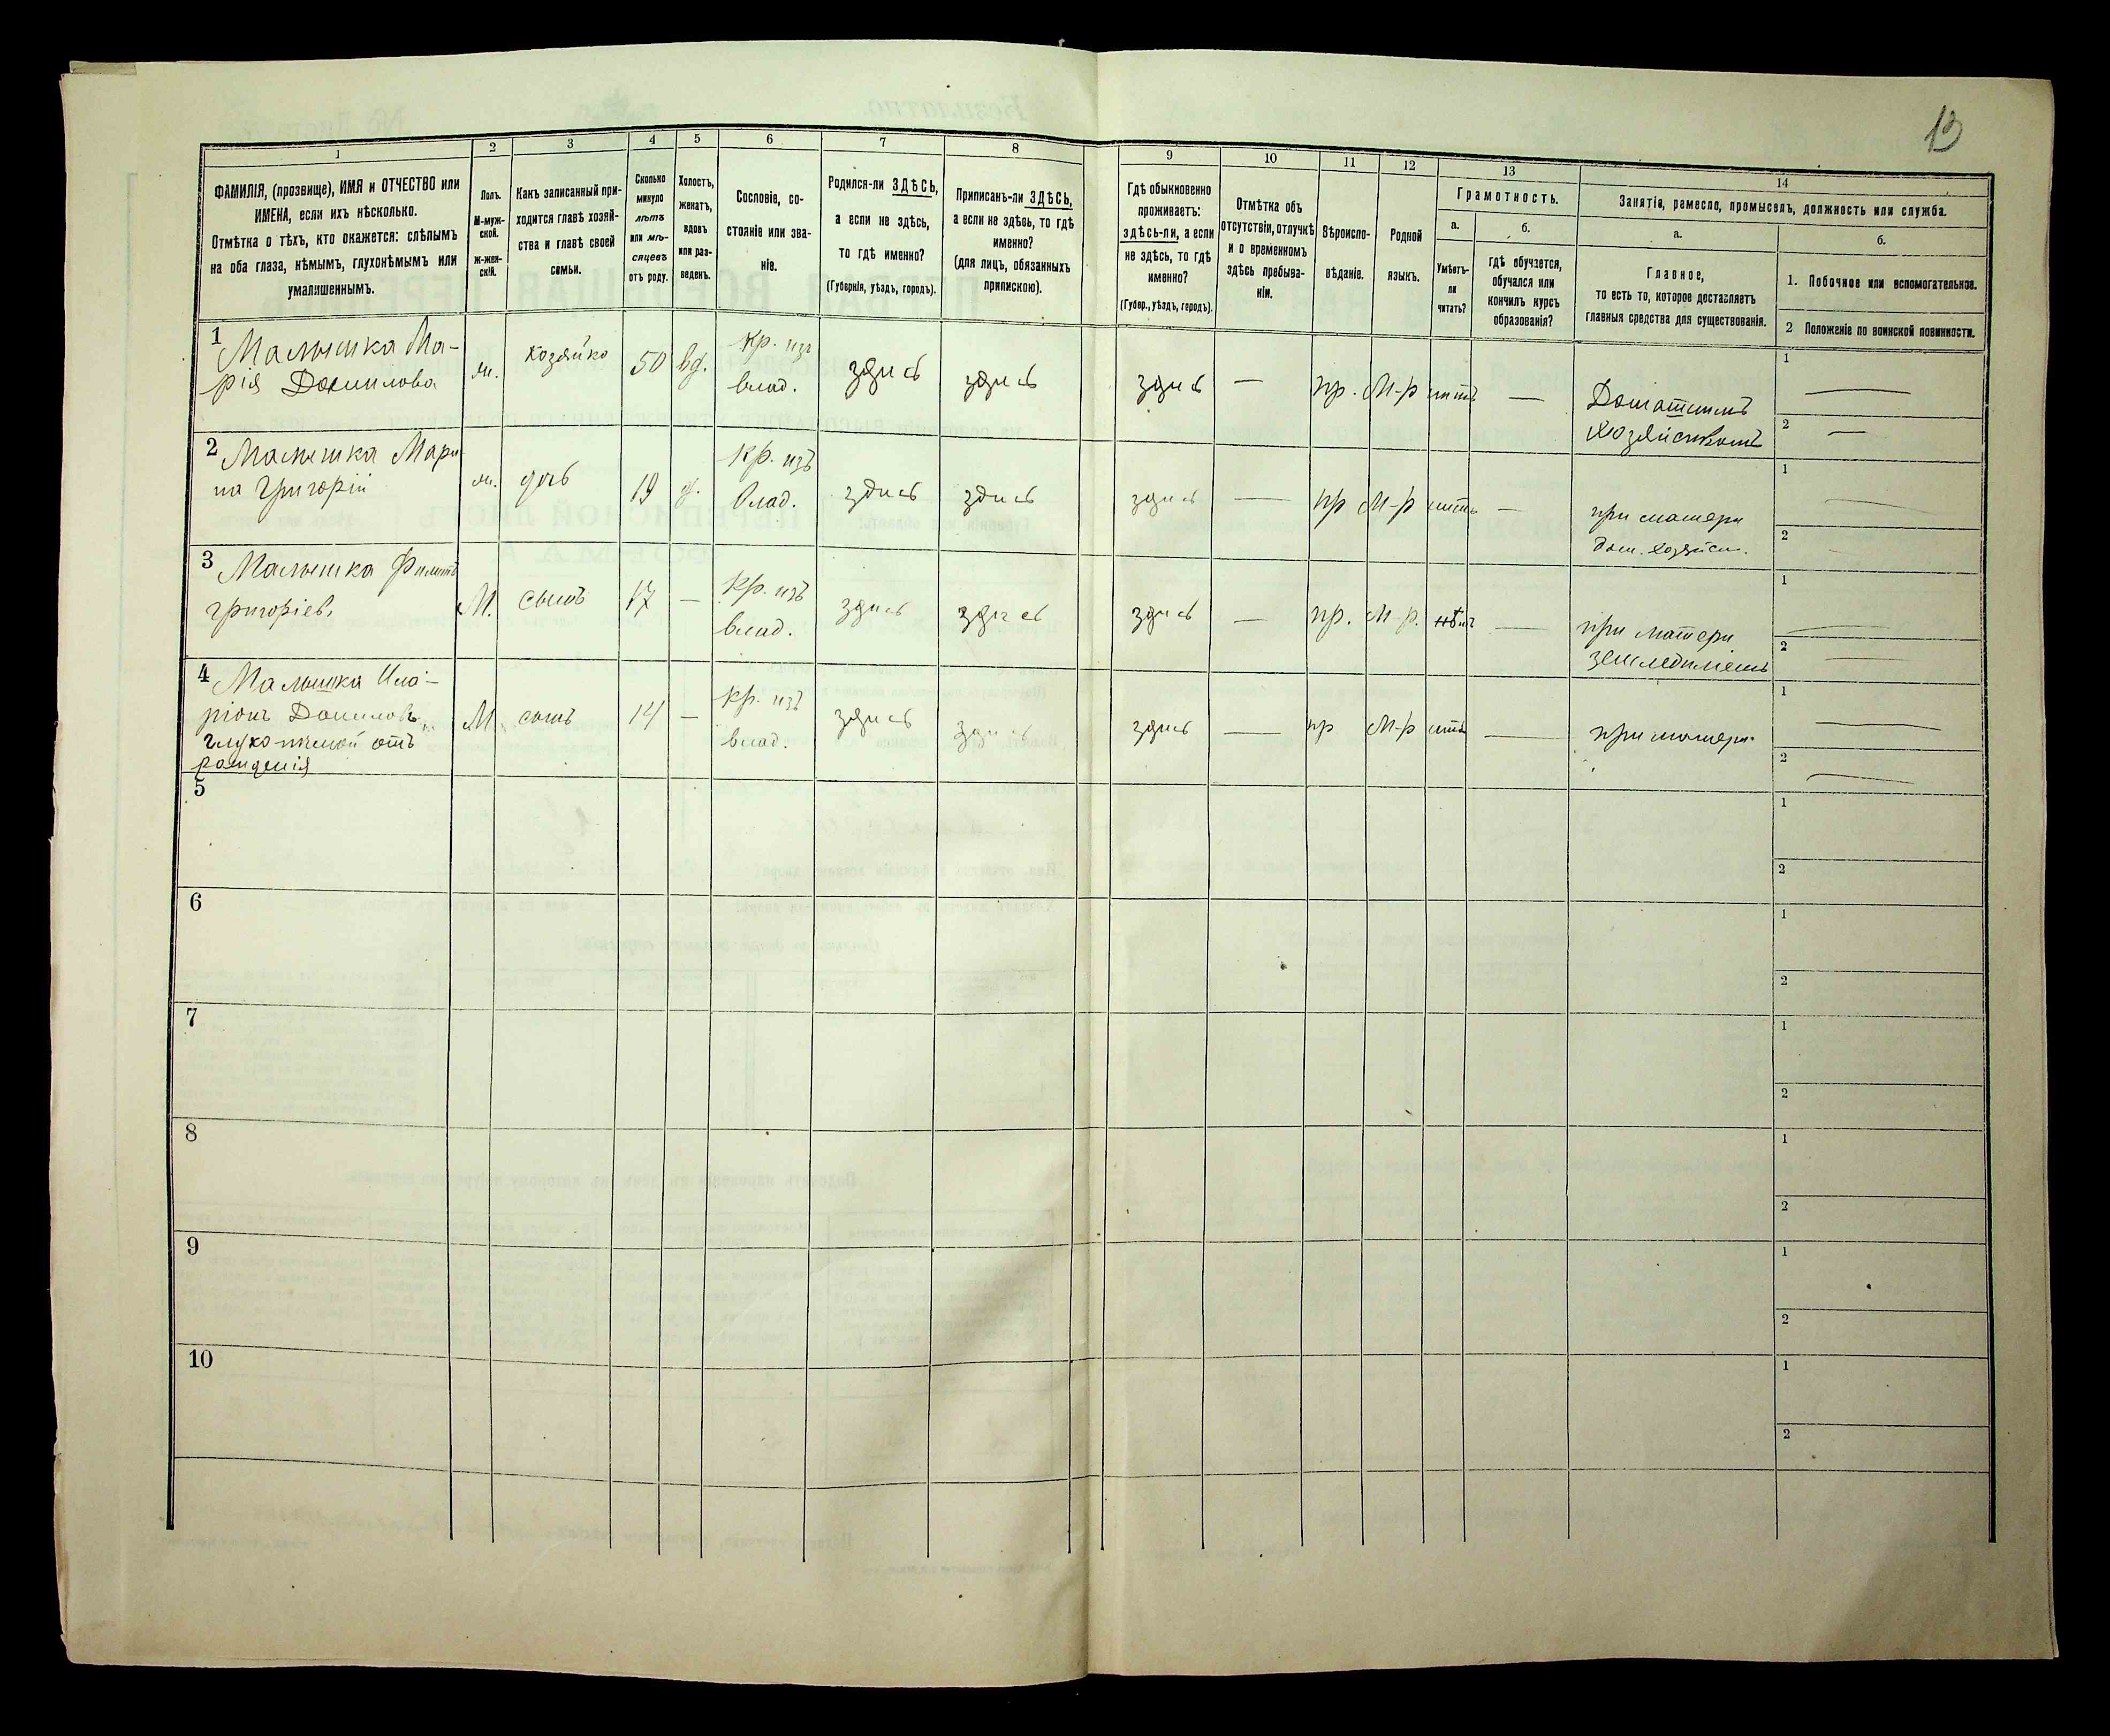 13
1 2 3 4 5 6 7 8 9 10 11 12 13 14
ФАМИЛІЯ, (прозвище), ИМЯ и ОТЧЕСТВО или
ИМЕНА, если ихъ нѣсколько.
Отмѣтка о тѣхъ, кто окажется: слѣпымъ
на оба глаза, нѣмымъ, глухонѣмымъ или
умалишеннымъ.
Полъ.
М-муж-
ской.
ж-жен-
скій.
Какъ записанный при-
ходится главѣ хозяй-
ства и главѣ своей
семьи.
Сколько
минуло
лѣтъ
или мѣ-
сяцевъ
отъ роду.
Холостъ,
женатъ,
вдовъ
или раз-
веденъ.
Сословіе, со-
стояніе или зва-
ніе.
Родился-ли ЗДѢСЬ,
а если не здѣсь,
то гдѣ именно?
(Губернія, уѣздъ, городъ).
Приписанъ-ли ЗДѢСЬ,
а если не здѣсь, то гдѣ
именно?
(для лицъ, обязанныхъ
припискою).
Гдѣ обыкновенно
проживаетъ:
здѣсь-ли, а если
не здѣсь, то гдѣ
именно?
(Губер., уѣздъ, городъ).
Отмѣтка объ
отсутствіи, отлучкѣ
и о временномъ
здѣсь пребыва-
ніи.
Вѣроиспо-
вѣданіе.
Родной
языкъ.
Грамотность.
а.
Умѣетъ-
ли
читать?
б.
гдѣ обучается,
обучался или
кончилъ курсъ
образованія?
Занятія, ремесло, промыселъ, должность или служба.
а.
Главное,
то есть то, которое доставляетъ
главныя средства для существованія.
б.
1. Побочное или вспомогательное.
2 Положеніе по воинской повинности.
1 Малышка Ма-
рія Данилова
ж.
хозяйка
50
вд.
кр. изъ
влад.
здѣсь
здѣсь
здѣсь
—
пр.
М-р
нѣтъ
—
Домашнимъ
хозяйствомъ
1 —
2 —
2 Малышка Мари
на Григорій
ж.
дочь
19
д.
кр. изъ
влад.
здѣсь
здѣсь
здѣсь
—
пр
М-р
нѣтъ
—
при матери
дом. хозяйст.
1 —
2 —
3 Малышка Филипъ
Григоріев.
М.
сынъ
17
—
кр. изъ
влад.
здѣсь
здѣсь
здѣсь
—
пр.
М-р.
нѣтъ
—
при матери
земледѣліемъ
1 —
2 —
4 Малышка Ила-
ріонъ Данилов.
глухо-нѣмой отъ
рожденія
М.
сынъ
14
—
кр. изъ
влад.
здѣсь
здѣсь
здѣсь
—
пр
М-р
нѣтъ
—
при матери
1 —
2 —
5
1
2
6
1
2
7
1
2
8
1
2
9
1
2
10
1
2